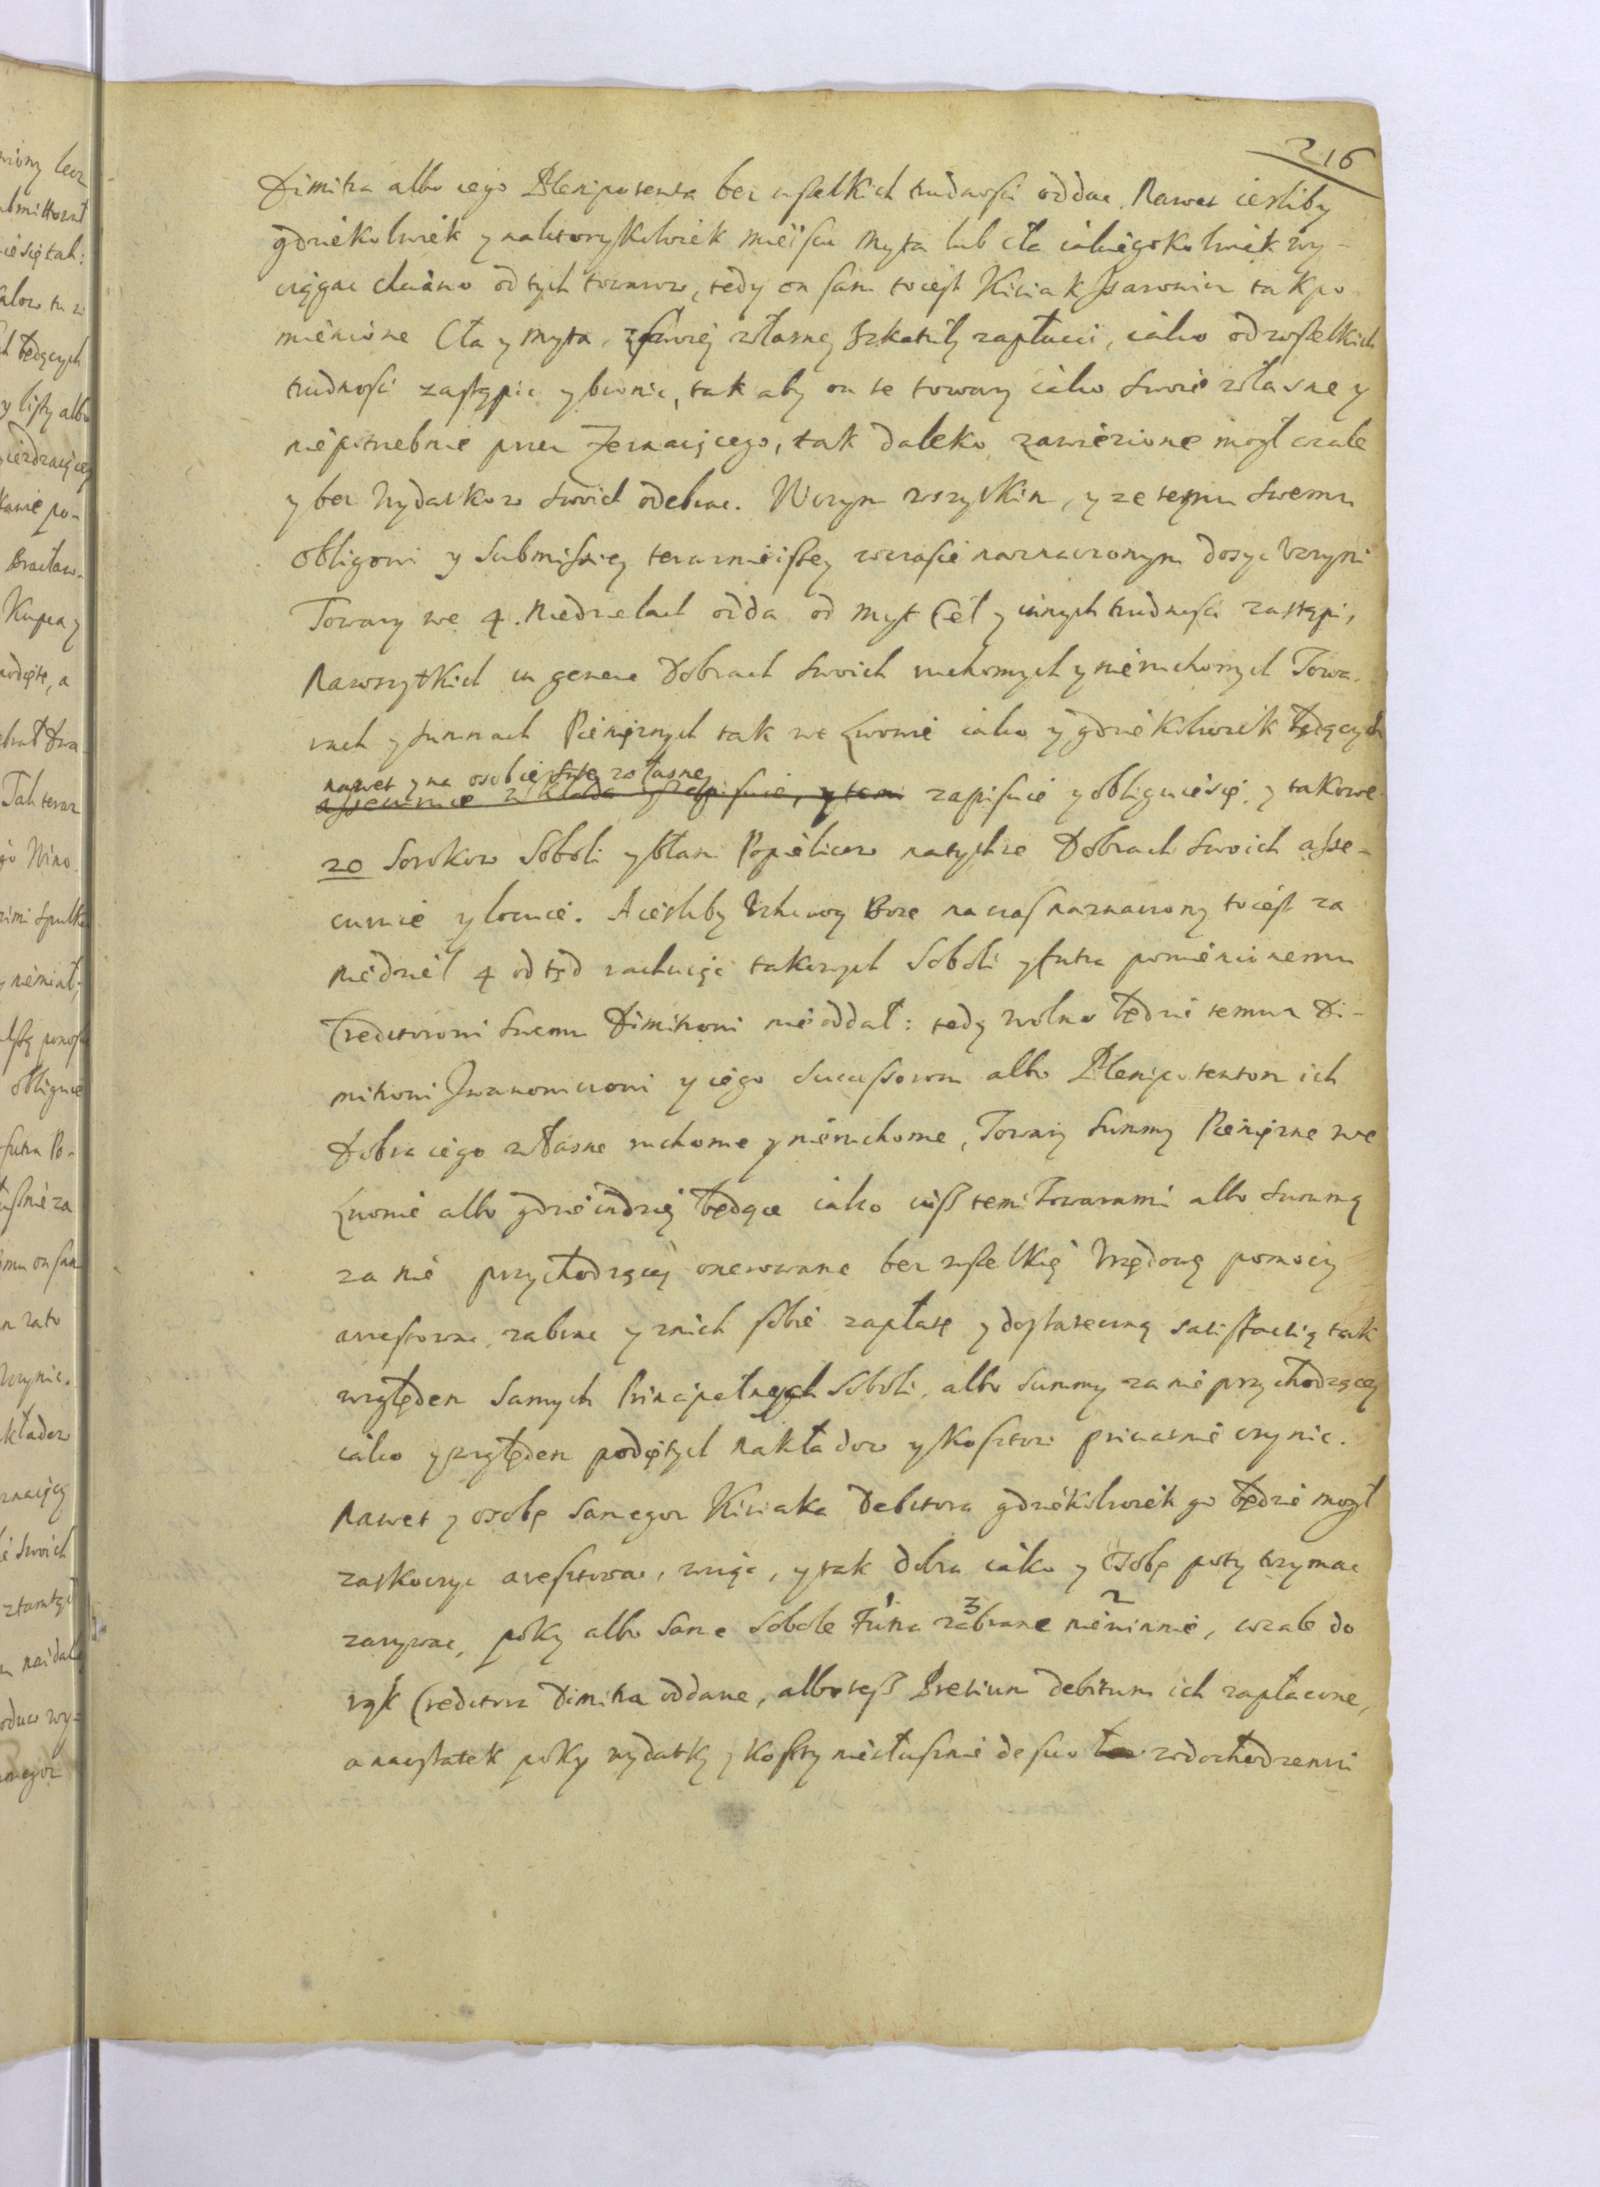 216
Dimitra albo iego Plenipotenta bez wszelkich trudnosci oddac. Nawet iesliby
gdziekolwiek y naktorymkolwiek mieiscu myta lub cła iakiegokolwiek wy-
ciągac chciano od tych towarow, tedy on sam to iest Kiriak Isarowicz tak po
mienione Cła y myta, z swoiey własney szkatuły zapłaci, iako od wszelkich
trudnosci zastąpic y bronic, tak aby on te towary iako swoie własne y
niepotrzebnie przez zeznaiącego, tak daleko zawiezione mogł wcale
y bez wydatkow swoich odebrac. W czym wszytkim, y ze temu swemu
obligowi y submissiey teraznieiszey w czasie naznaczonym dosyc uczyni
Towary we 4. Niedzielach odda od myt Ceł y innych trudnosci zastąpi,
Nawszytkich in genere Dobrach swoich ruchomych y nieruchomych Towa-
rach y summach Pieniężnych tak we Lwowie iako y gdziekolwiek będących
nawet y na osobie swey własney
zapisuie y obliguie się, y takowe
20 Sorokow Soboli y błam Popielicow natychże Dobrach swoich asse-
curuie y locuie. A iesliby uchoway Boze na czas naznaczony to iest za
niedziel 4 od tąd rachuiąc takowych Soboli y futra pomienionemu
Creditorowi swemu Dimitrowi nieoddał: tedy wolno będzie temuz Di-
mitrowi Iwanowiczowi y iego successorom albo Plenipotentom ich
Dobra iego własne ruchome y nieruchome, Towary summy Pieniężne we
Lwowie albo gdzieindziey będące iako iusz temi Towarami albo summą
za nie przychodzącey onerowane bez wszelkiey Urzędowey pomocy
arrestowac zabrac y znich sobie zapłatę y dostateczną satisfactią tak
względem samych Principalnych Soboli, albo summy za nie przychodzącey
iako y względem podiętych nakładow y kosztow priwatnie uczynic.
Nawet y osobę samegoz Kiriaka Debitora gdziekolwiek go będzie mogł
zaskoczyc aresztowac, wziąc, y tak dobra iako y osobę poty trzymac
1 3 2
zazywac, poky albo same sobole Futra zabrane niewinnie, wcale do
rąk Creditora Dimitra oddane, albo tesz Pretium debitum ich zapłacone,
a naostatek poky wydatky y koszty niesłusznie de suo w dochodzeniu